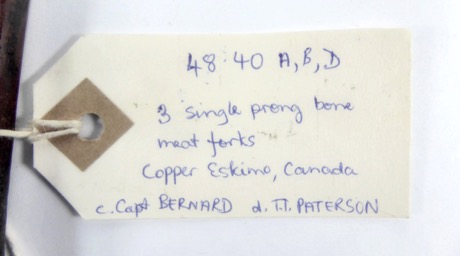 48.40 A, B, D
3 single prong bone
meat forks
Copper Eskimo, Canada
c. Capt BERNARD d. T.T. PATERSON